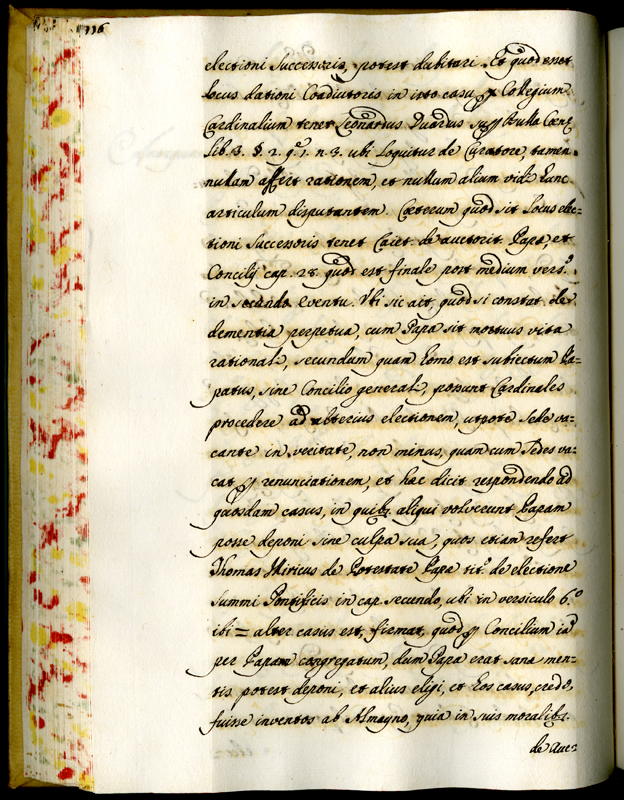 116
electioni Successoris, potest dubitari. Et quod esset
locus dationi Coadiutoris in isto casu p Collegium
Cardinalium tenet Leonardus Duardus sup Bulla Coenę
lib. 3. §. 2. q. 1. n. 3. ubi loquitur de Curatore, tamen
nullam affert rationem, et nullum alium vidi hunc
articulum disputantem. Coeterum quod sit locus elec=
tioni Successoris tenet Caiet. de auctorit. Papę et
Concilij cap. 28. quod est finale post medium vers.º
in secundo eventu. Ubi sic ait, quod si constat de
dementia perpetua, cum Papa sit mortuus vita
rationali, secundum quam homo est subiectum Pa=
patus, sine Concilio generali, possunt Cardinales
procedere ad alterius electionem, utpote sede va=
cante in veritate, non minus, quam cum Sedes va=
cat p renunciationem, et hęc dicit respondendo ad
quosdam casus, in quibz aliqui voluerunt Papam
posse deponi sine culpa sua, quos etiam refert
Thomas de Potestate Papę tit.º de electione
Summi Pontificis in cap. secundo, ubi in versiculo 6.º
ibi = alter casus est, firmat, quod p Concilium iā
per Papam congregatum, dum Papa erat sanę men=
tis potest deponi, et alius eligi, et hos casus, credo,
fuisse inventos ab Almayno, quia in suis moralibz.
de auc=